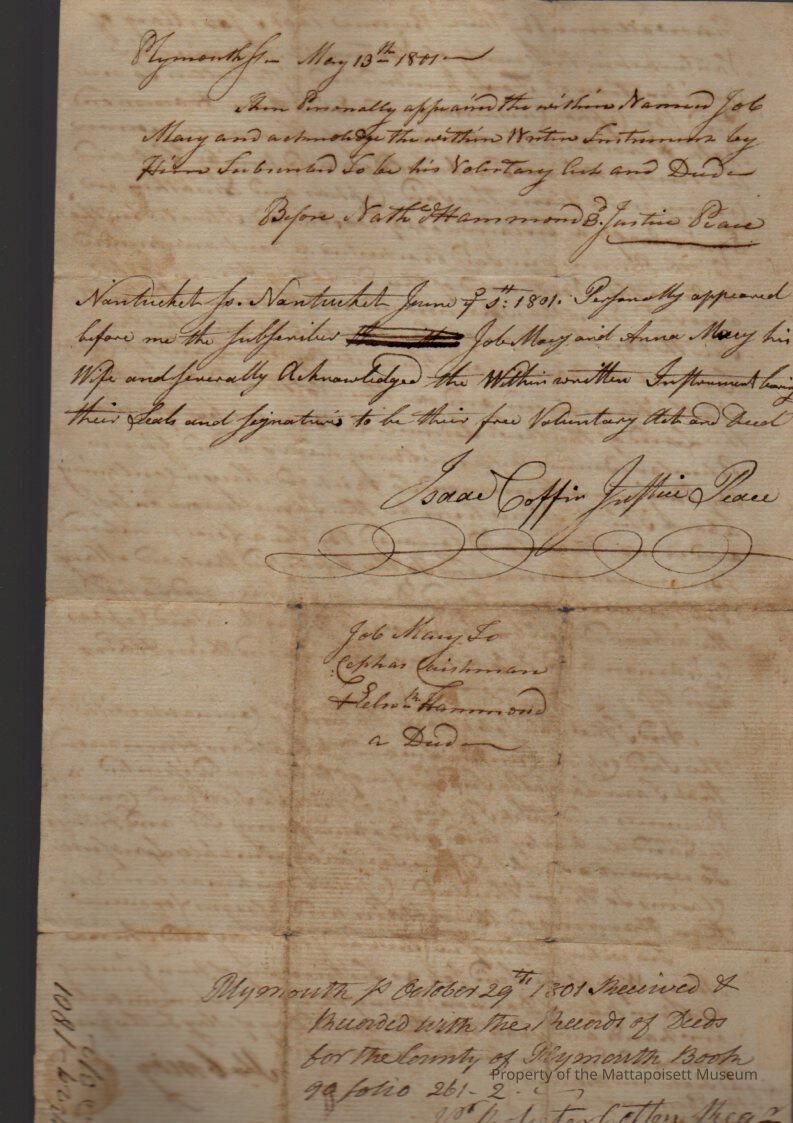 Plymouth Ss May 13th 1801
then Personally appeared the within Named Job
Macy and acknoledge the within Writen Instrument by
Him Subscribed to be his Voluntary Act and Deed
Before Nathl Hammond Justice Peace
Nantucket Ss. Nantucket June 1801. Personally appeared
before me the Subscriber Job Macy and Anna Macy his
Wife and severally Acknowledged the Within written Instrument having
their Seals and signatures to be their free Voluntary Act and Deed
Isaac Coffin Justice Peace
Job Macy To
Cephas Cushman
Hammond
a Deed
Plymouth Ss October 29th 1801 Received &
Recorded with the Records of Deeds
for the County of Plymouth Book
90 folio 261-2
Property of the Mattapoisett Museum